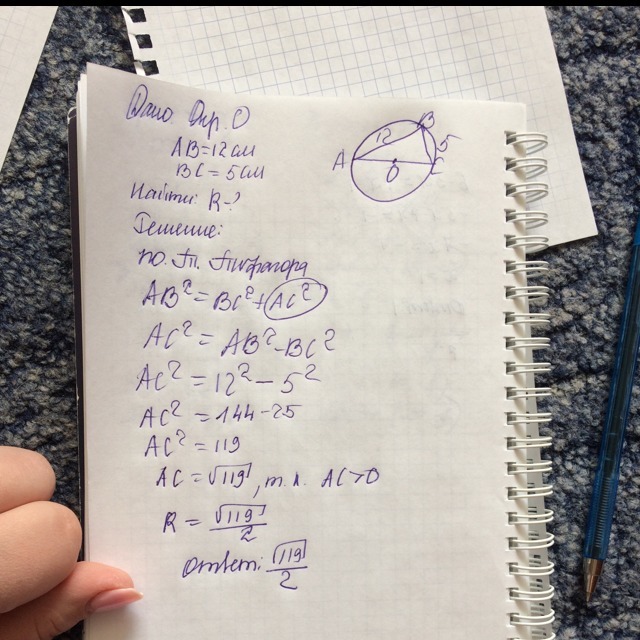 Дано Окр. О
AB = 12 см
BC = 5 см
Найти: R-?
Решение:
по т. Пифагора
AB² = BC² + AC²
AC² = AB² - BC²
AC² = 12² - 5²
AC² = 144 - 25
AC² = 119
AC = √119, т.к. AC > 0
R = √119/2
Ответ: √119/2
A
12
B
5
C
O